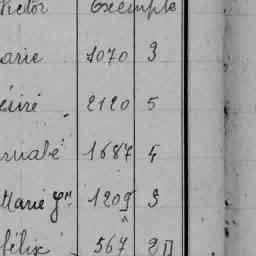 Victor Exempte
arie 1070 3
éiré 2120 5
rnabé 1687 4
Marie Jh 1209 3
félix 567 2